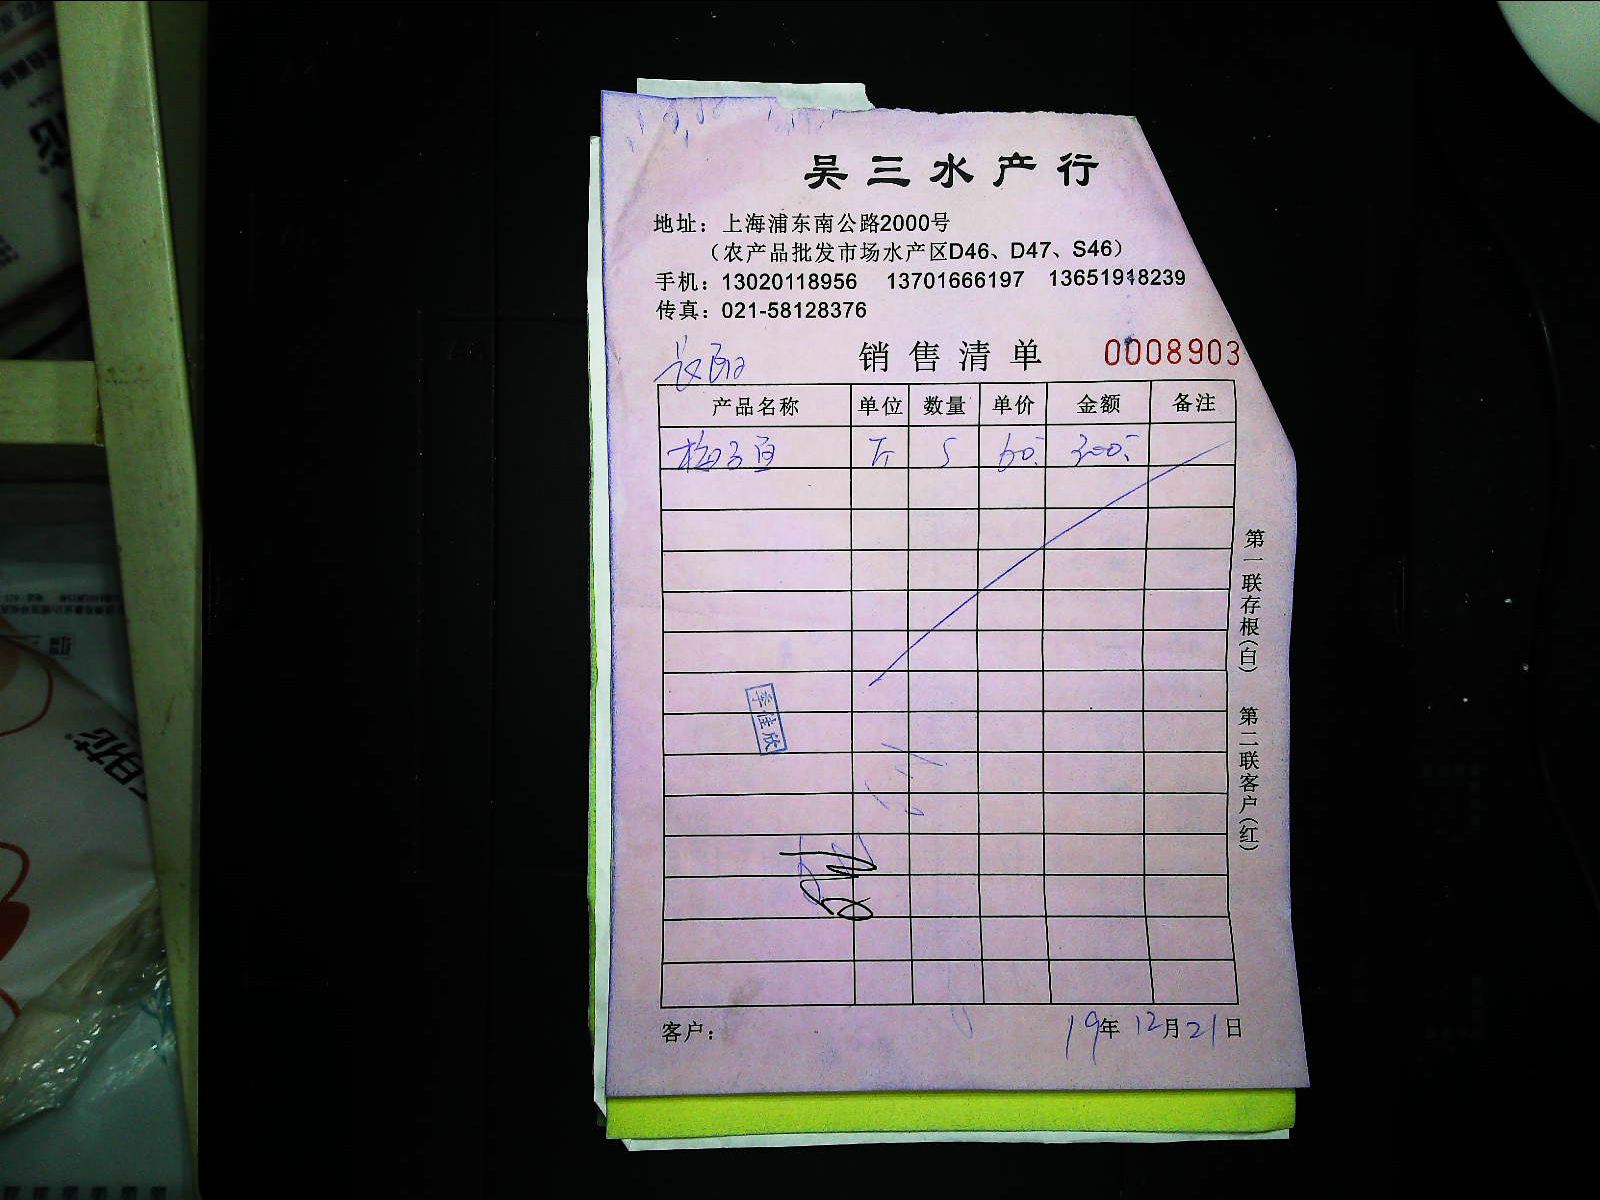 吴三水产行
地址：上海浦东南公路2000号
（农产品批发市场水产区D46、D47、S46）
手机：13020118956 13701666197 13651918239
传真：021-58128376
销售清单 0008903
产品名称 单位 数量 单价 金额 备注
梅子鱼 斤 5 60.- 300.-
第一联存根(白) 第二联客户(红)
李佳欣
客户： 19年12月21日